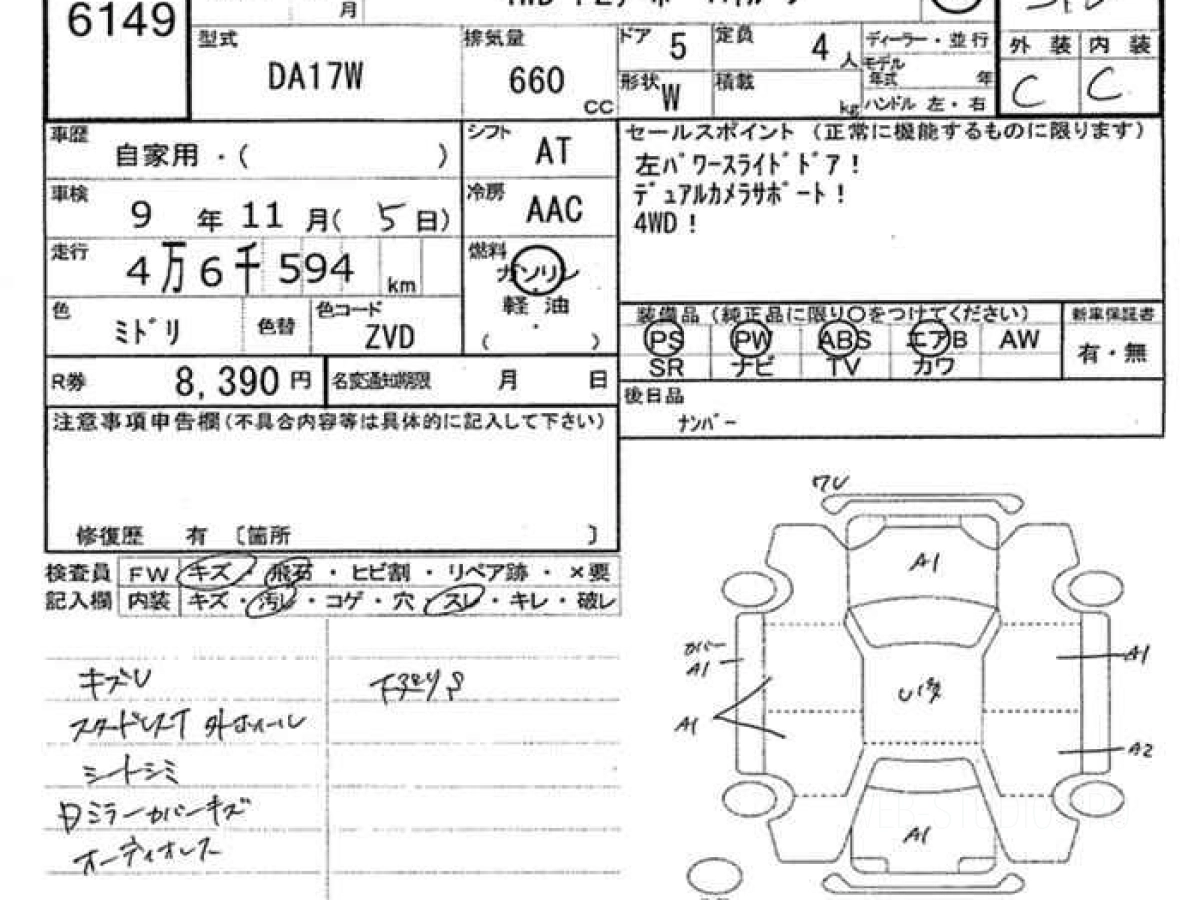 6149
月
型式 DA17W
排気量 660 CC
ドア 5
定員 4 人
ディーラー・並行
モデル年式 年
形状 W
積載 kg
ハンドル 左・右
外装 内装
C C
車歴 自家用・( )
シフト AT
車検 9 年 11 月( 5 日)
冷房 AAC
走行 4万6千594 km
燃料 ガソリン
軽油
( ・ )
色 ミドリ 色替
色コード ZVD
R券 8,390 円
名変通知期限 月 日
セールスポイント (正常に機能するものに限ります)
左パワースライドドア!
デュアルカメラサポート!
4WD!
装備品 (純正品に限り〇をつけてください)
PS PW ABS エアB AW
SR ナビ TV カワ
新車保証書
有・無
後日品
ナンバー
注意事項申告欄(不具合内容等は具体的に記入して下さい)
修復歴 有 〔箇所 〕
検査員 FW キズ・飛石・ヒビ割・リペア跡・×要
記入欄 内装 キズ・汚レ・コゲ・穴・スレ・キレ・破レ
キズU
スタッドレスT 外ホイール
シートシミ
シミラーカバーキズ
オーディオレス
下廻りS
ワレ
A1
カバー
A1
A1
A1
A2
A1